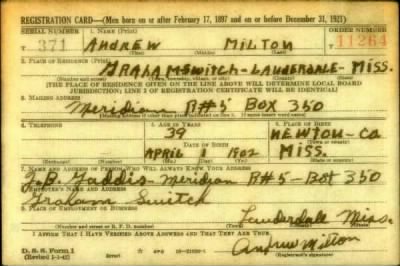 REGISTRATION CARD—(Men born on or after February 17, 1897 and on or before December 31, 1921)
SERIAL NUMBER 1. NAME (Print) ORDER NUMBER
T 371 ANDREW MILTON 11264
(First) (Middle) (Last)
2. PLACE OF RESIDENCE (Print)
GRAHAM SWITCH - LAUDERDALE - MISS.
(Number and street) (Town, township, village, or city) (County) (State)
[THE PLACE OF RESIDENCE GIVEN ON THE LINE ABOVE WILL DETERMINE LOCAL BOARD
JURISDICTION; LINE 2 OF REGISTRATION CERTIFICATE WILL BE IDENTICAL]
3. MAILING ADDRESS
Meridian R#5 Box 350
[Mailing address if other than place indicated on line 2. If same insert word same]
4. TELEPHONE 5. AGE IN YEARS 6. PLACE OF BIRTH
39 NEWTON - CO
DATE OF BIRTH (Town or county)
APRIL 1 1902 MISS.
(Exchange) (Number) (Mo.) (Day) (Yr.) (State or country)
7. NAME AND ADDRESS OF PERSON WHO WILL ALWAYS KNOW YOUR ADDRESS
J.B. Gaddis - Meridian R#5 - Box 350
8. EMPLOYER'S NAME AND ADDRESS
Graham Switch
9. PLACE OF EMPLOYMENT OR BUSINESS
Lauderdale Miss.
(Number and street or R. F. D. number) (Town) (County) (State)
I AFFIRM THAT I HAVE VERIFIED ABOVE ANSWERS AND THAT THEY ARE TRUE.
D. S. S. Form 1
(Revised 1-1-42) Andrew Milton